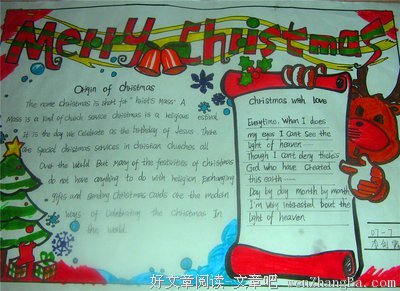 Merry Christmas
Origin of christmas
The name Christmas is short for "hrist's Mass" A
Mass is a kind of church service christmas is a religious estival
It is the day we Celebrate as the birthday of Jesus There
are Special christmas services in christian Churches all
Over the world But many of the festivities of christmas
do not have anything to do with religion Exchanging
gifts and sending Christmas Cards are the modern
ways of Celebrating the Christmas In
the world.
Christmas wish love
Everytime. When I does
my eyes I Can't See the
light of heaven
Though I Can't deny
God who have Cheated
this earth
Day by day month by month
I'm very bout the
light of heaven
07-7
好文章阅读 文章吧 wenzhangba.com